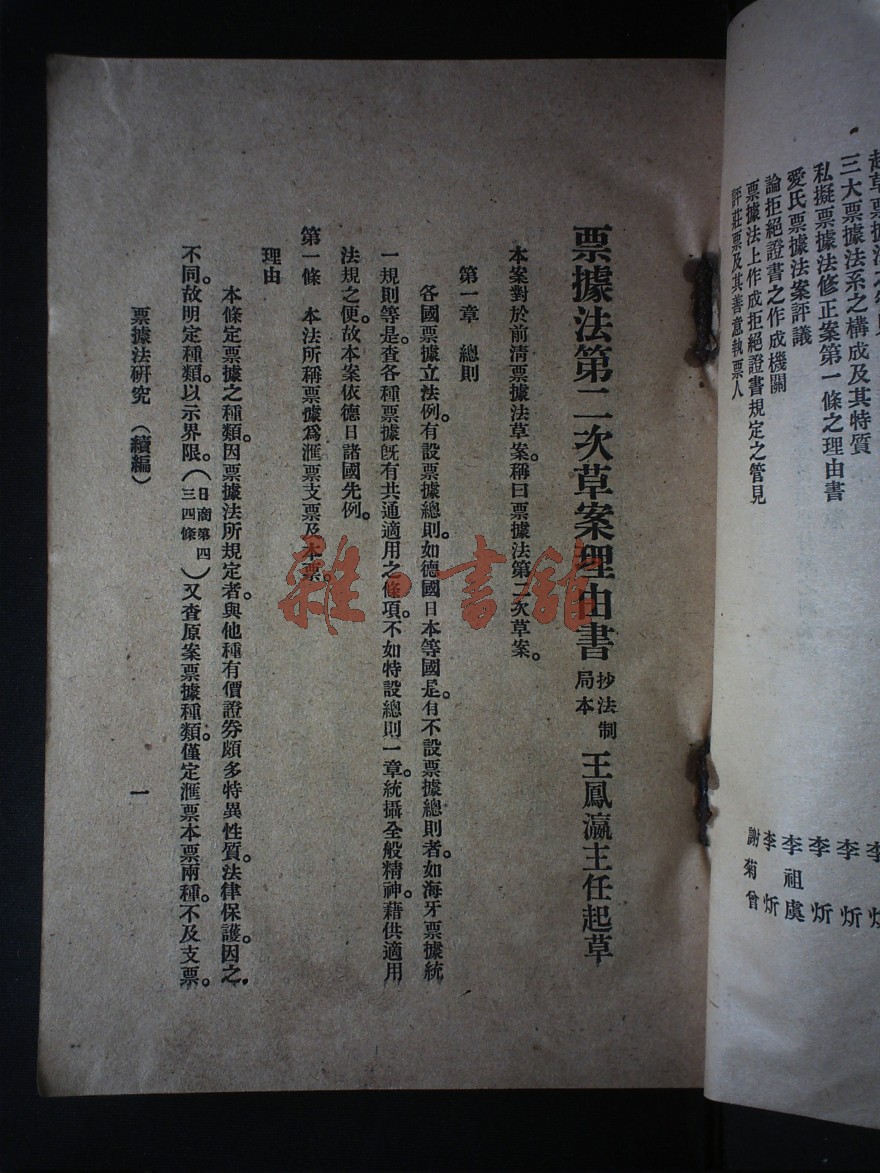 三大票據法系之構成及其特質
私擬票據法修正案第一條之理由書 李炘
愛氏票據法案評議 李炘
論拒絕證書之作成機關 李祖虞
票據法上作成拒絕證書規定之管見 李炘
評莊票及其善意執票人 謝菊曾
票據法第二次草案理由書 法制局抄本 王鳳瀛主任起草
本案對於前清票據法草案。稱曰票據法第二次草案。
第一章 總則
各國票據立法例。有設票據總則。如德國日本等國是。有不設票據總則者。如海牙票據統
一規則等是。查各種票據旣有共通適用之條項。不如特設總則一章。統攝全般精神。藉供適用
法規之便。故本案依德日諸國先例。
第一條 本法所稱票據爲滙票支票及本票。
理由
本條定票據之種類。因票據法所規定者。與他種有價證券頗多特異性質。法律保護。因之
不同。故明定種類。以示界限。(日商第四三四條)又查原案票據種類。僅定滙票本票兩種。不及支票。
票據法研究 (續編)
一
雜·書館